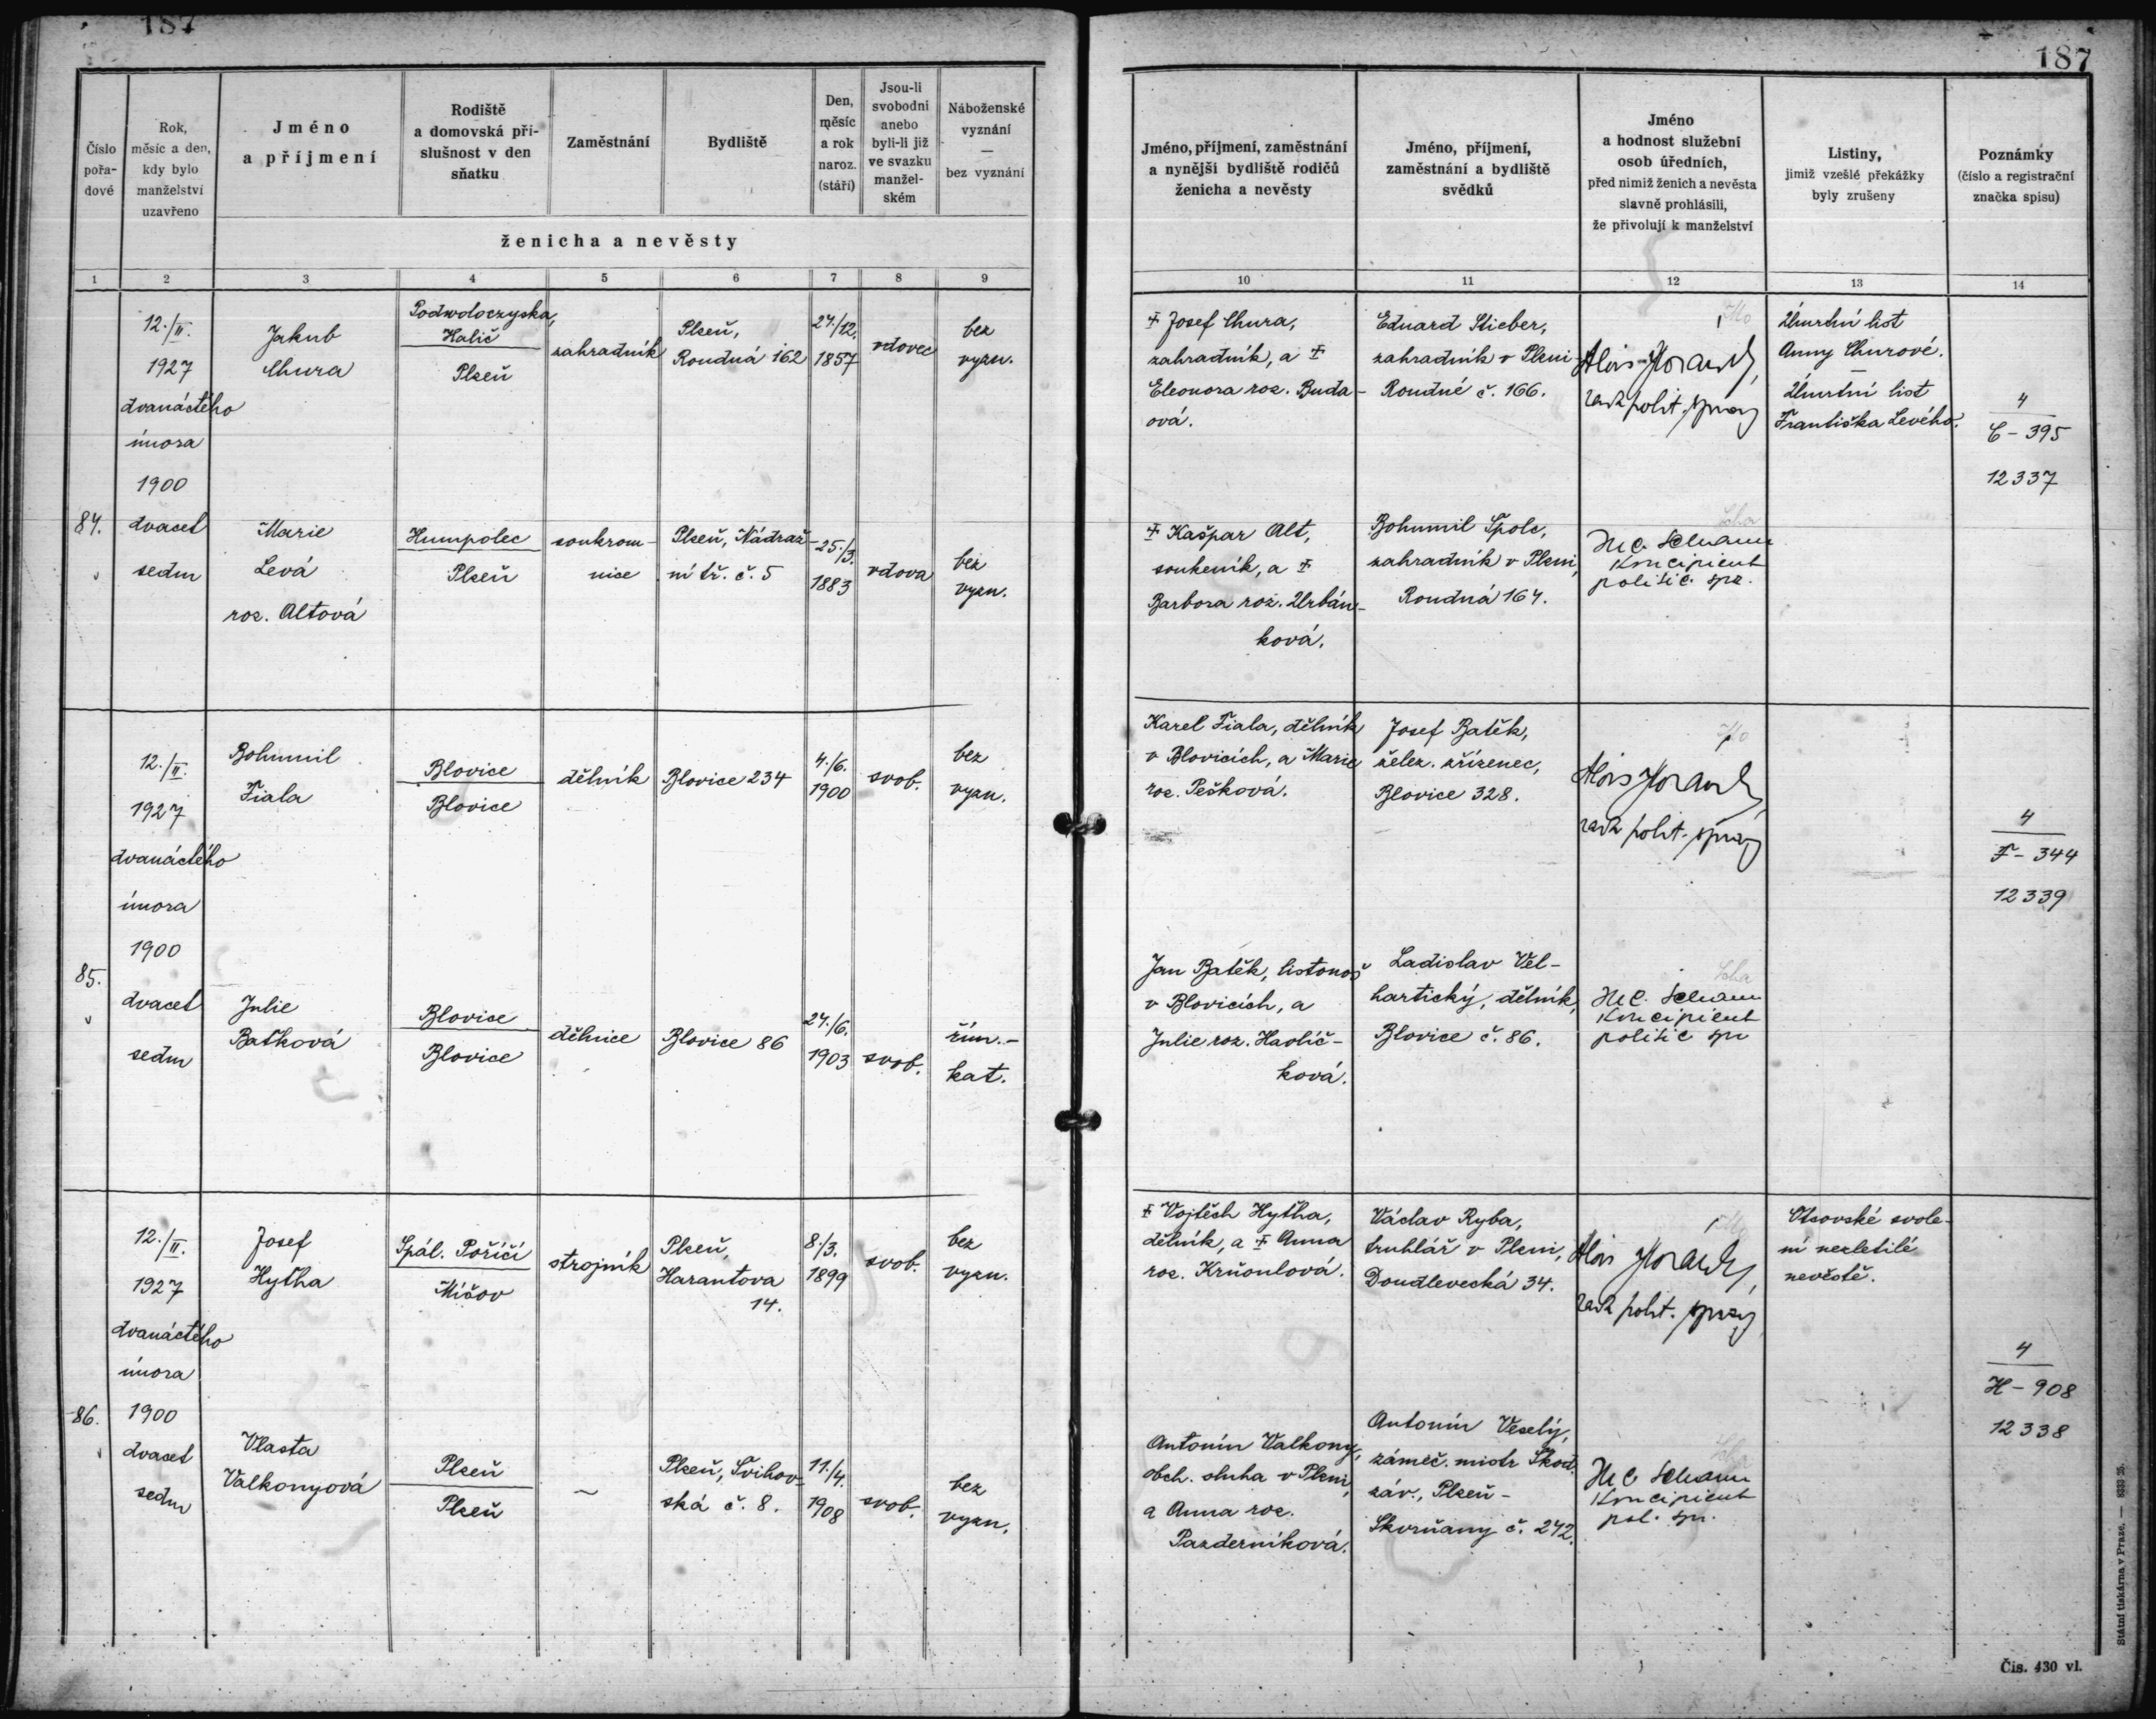 187
187
Číslo
pořa-
dové
Rok,
měsíc a den,
kdy bylo
manželství
uzavřeno
Jméno
a příjmení
Rodiště
a domovská pří-
slušnost v den
sňatku
Zaměstnání
Bydliště
Den,
měsíc
a rok
naroz.
(stáří)
Jsou-li
svobodni
anebo
byli-li již
ve svazku
manžel-
ském
Náboženské
vyznání
—
bez vyznání
ženicha a nevěsty
1 2 3 4 5 6 7 8 9
Jméno, příjmení, zaměstnání
a nynější bydliště rodičů
ženicha a nevěsty
Jméno, příjmení,
zaměstnání a bydliště
svědků
Jméno
a hodnost služební
osob úředních,
před nimiž ženich a nevěsta
slavně prohlásili,
že přivolují k manželství
Listiny,
jimiž vzešlé překážky
byly zrušeny
Poznámky
(číslo a registrační
značka spisu)
10 11 12 13 14
84.
12./II.
1927
dvanáctého
února
1900
dvacet
sedm
Jakub
Chura
Podwoloczyska,
Halič
Plzeň
zahradník
Plzeň,
Roudná 162
24./12.
1857
vdovec
bez
vyzn.
Marie
Levá
roz. Altová
Humpolec
Plzeň
soukrom-
nice
Plzeň, Nádraž-
ní tř. č. 5
25./3.
1883
vdova
bez
vyzn.
‡ Josef Chura,
zahradník, a ‡
Eleonora roz. Buda-
ová.
Eduard Stieber,
zahradník v Plzni-
Roudné č. 166.
Alois Horák,
rada polit. správy
Úmrtní list
Anny Churové.
—
Úmrtní list
Františka Levého.
4
C - 395
12337
‡ Kašpar Alt,
soukeník, a ‡
Barbora roz. Urbán-
ková.
Bohumil Špolc,
zahradník v Plzni,
Roudná 164.
koncipient
politic. spr.
85.
12./II.
1927
dvanáctého
února
1900
dvacet
sedm
Bohumil
Fiala
Blovice
Blovice
dělník
Blovice 234
4./6.
1900
svob.
bez
vyzn.
Julie
Baťková
Blovice
Blovice
dělnice
Blovice 86
24./6.
1903
svob.
řím.-
kat.
Karel Fiala, dělník
v Blovicích, a Marie
roz. Pešková.
Josef Batěk,
želez. zřízenec,
Blovice 328.
Alois Horák,
rada polit. správy
4
F - 344
12339
Jan Batěk, listonoš
v Blovicích, a
Julie roz. Havlíč-
ková.
Ladislav Vel-
hartický, dělník,
Blovice č. 86.
koncipient
politic spr
86.
12./II.
1927
dvanáctého
února
1900
dvacet
sedm
Josef
Hyťha
Spál. Poříčí
Míšov
strojník
Plzeň,
Harantova
14.
8./3.
1899
svob.
bez
vyzn.
Vlasta
Valkonyová
Plzeň
Plzeň
~
Plzeň, Švihov-
ská č. 8.
11./4.
1908
svob.
bez
vyzn.
‡ Vojtěch Hyťha,
dělník, a ‡ Anna
roz. Krňoulová.
Václav Ryba,
truhlář v Plzni,
Doudlevecká 34.
Alois Horák,
rada polit. správy
Otcovské svole-
ní nezletilé
nevěstě.
4
H - 908
12338
Antonín Valkony,
obch. sluha v Plzni,
a Anna roz.
Pazderníková.
Antonín Veselý,
zámeč. mistr Škod.
záv., Plzeň -
Skvrňany č. 242.
koncipient
pol. spr.
Státní tiskárna v Praze. — 8333 25.
Čís. 430 vl.